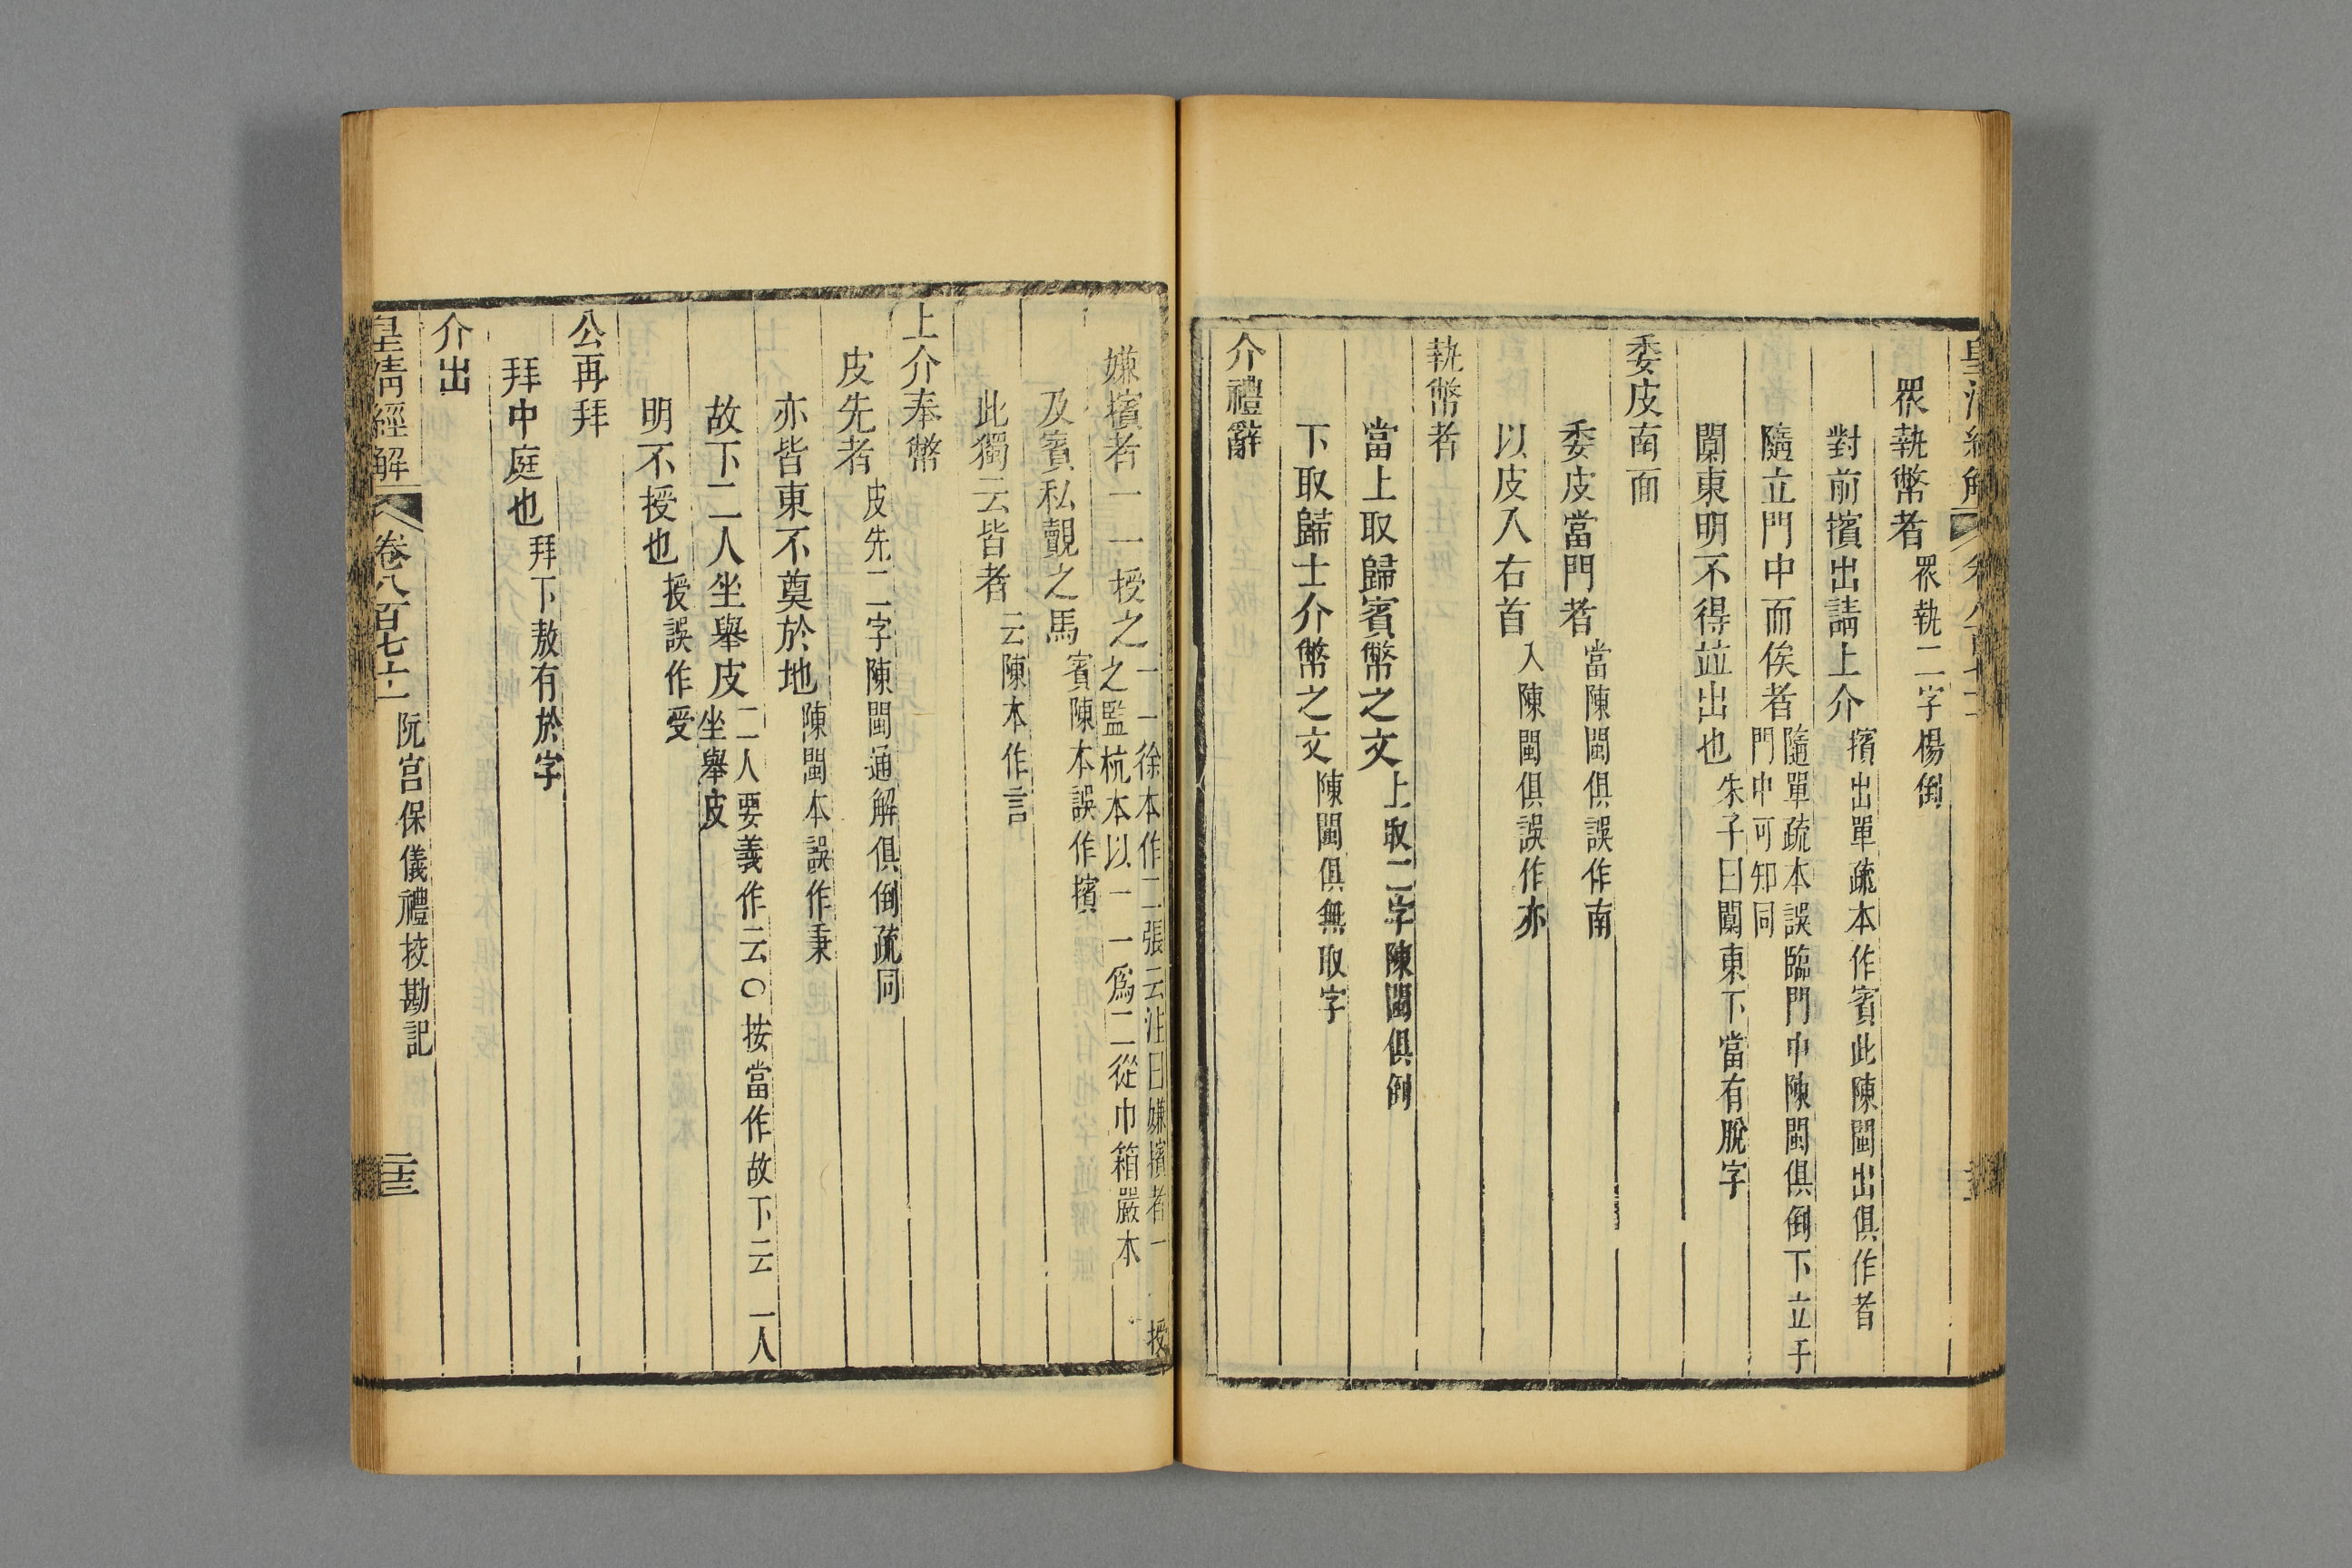 皇清經解
眾執幣者眾執二字楊倒
對前擯出請上介擯出單疏本作賓此陳閩出俱作者
隨立門中而俟者隨單疏本誤臨門中陳閩俱倒下立于
門中可知同
闑東明不得竝出也朱子曰闑東下當有脫字
委皮南面
委皮當門者當陳閩俱誤作南
以皮入右首入陳閩俱誤作亦
執幣者
當上取歸賓幣之文上取二字陳閩俱倒
下取歸士介幣之文陳閩俱無取字
介禮辭
嫌擯者一一授之一一徐本作二張云注曰嫌擯者一 授
之監杭本以一一爲二從巾箱嚴本
及賓私覿之馬賓陳本誤作擯
此獨云皆者云陳本作言
上介奉幣
皮先者皮先二字陳閩通解俱倒疏同
亦皆東不奠於地陳閩本誤作秉
故下二人坐舉皮二人要義作云○按當作故下云 一人
坐舉皮
明不授也授誤作受
公再拜
拜中庭也拜下敖有於字
介出
皇清經解 卷八百七十一 阮宮保儀禮挍勘記 二十三